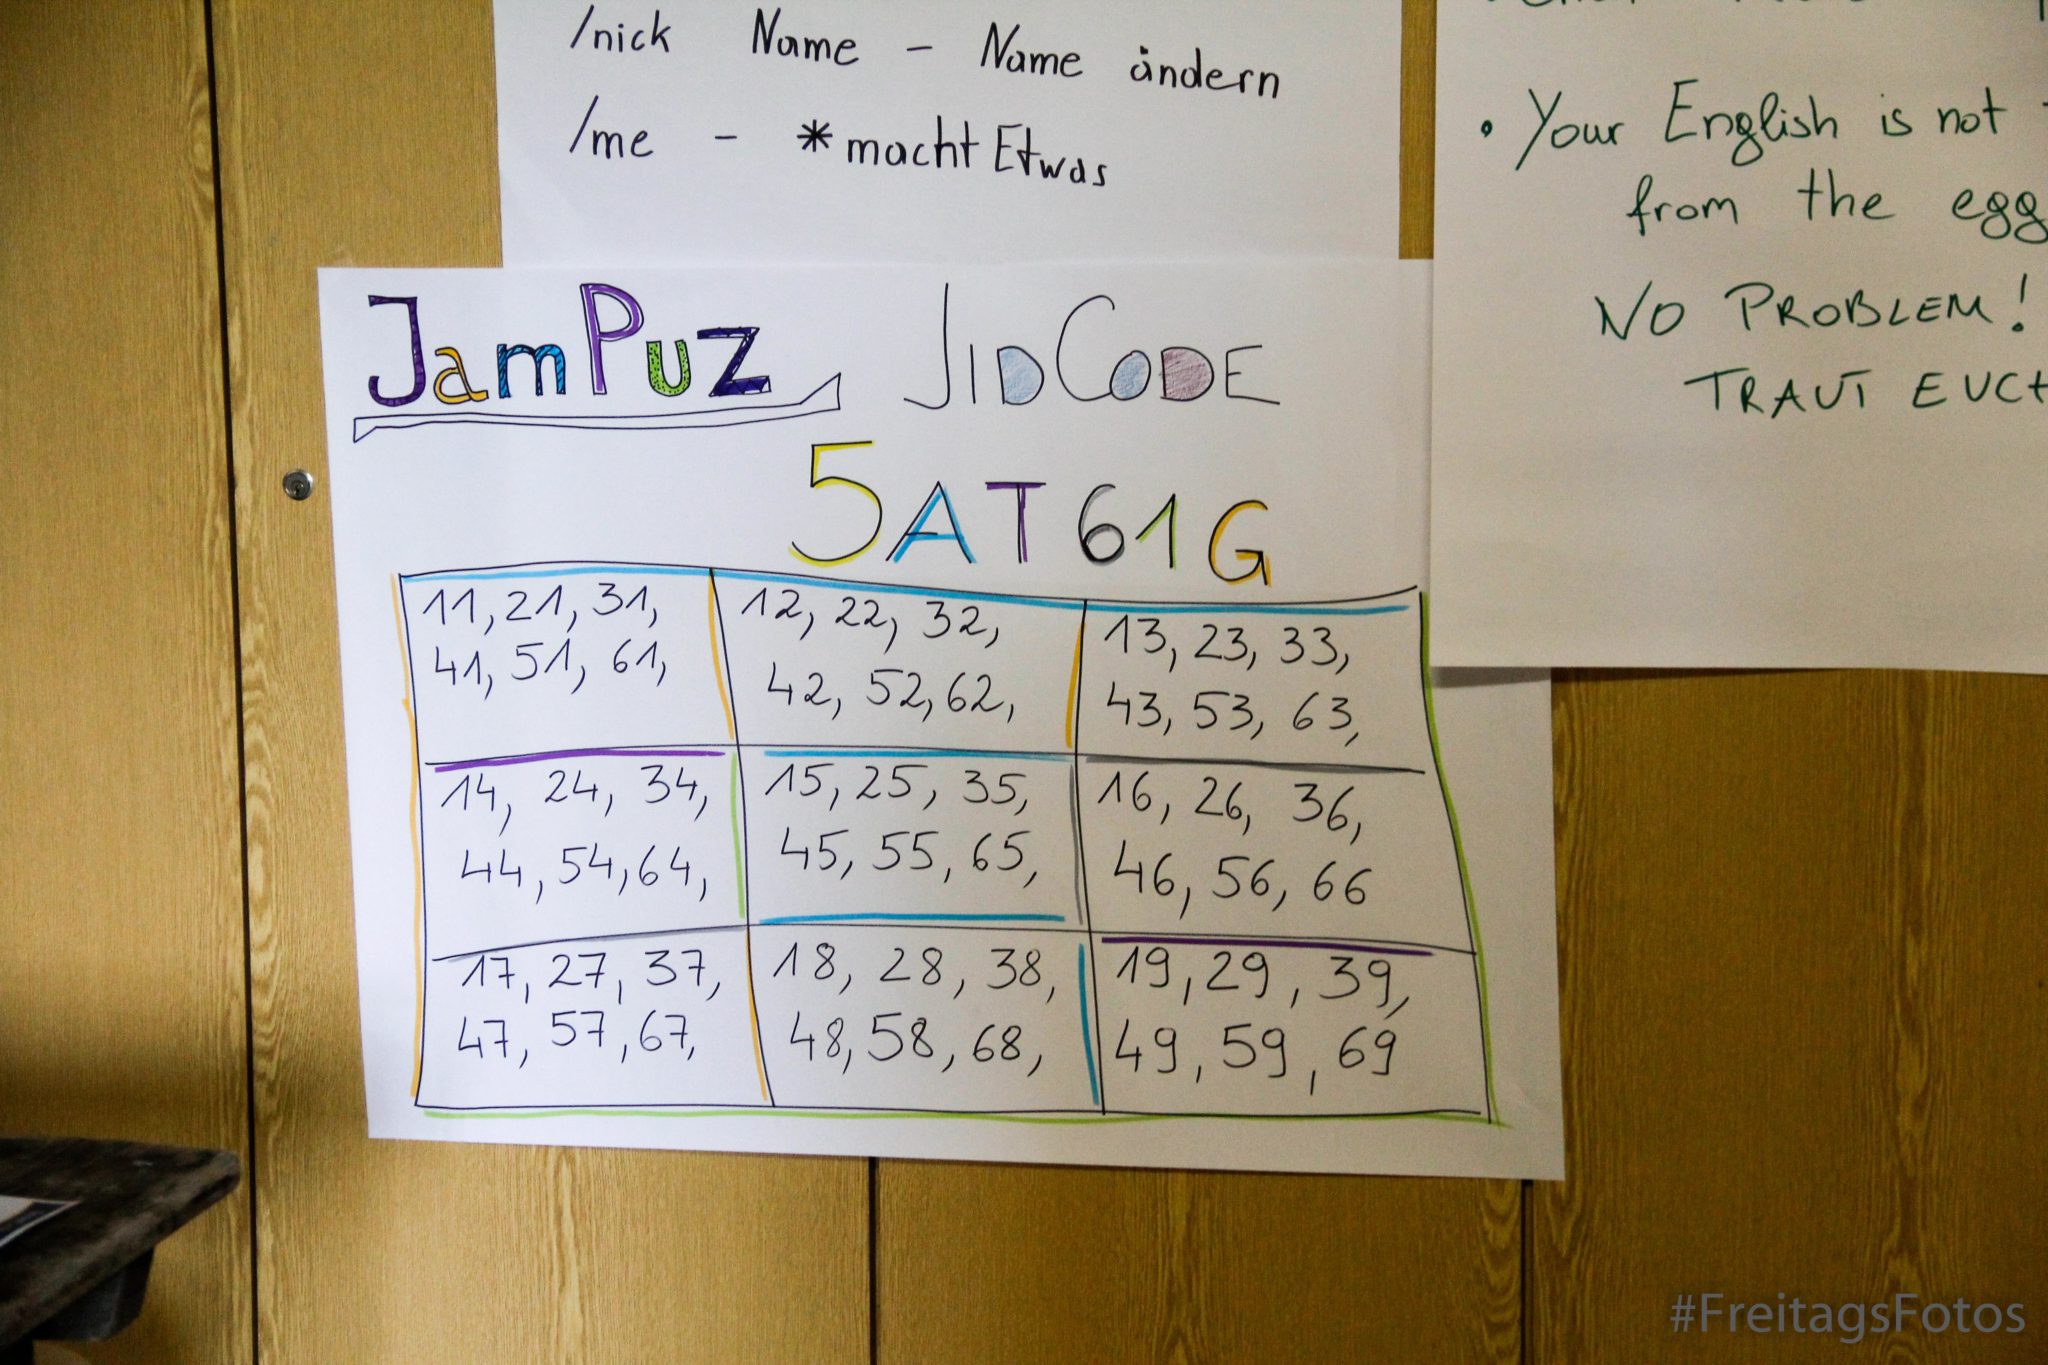 /nick Name - Name ändern
/me - *macht Etwas
• Your English is not
from the egg
NO PROBLEM!
TRAUT EUCH
JamPuz JIDCODE
5AT61G
11, 21, 31,
41, 51, 61,
12, 22, 32,
42, 52, 62,
13, 23, 33,
43, 53, 63,
14, 24, 34,
44, 54, 64,
15, 25, 35,
45, 55, 65,
16, 26, 36,
46, 56, 66
17, 27, 37,
47, 57, 67,
18, 28, 38,
48, 58, 68,
19, 29, 39,
49, 59, 69
#FreitagsFotos